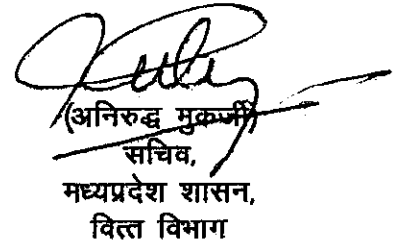 (अनिरुद्ध मुकर्जी)
सचिव,
मध्यप्रदेश शासन,
वित्त विभाग